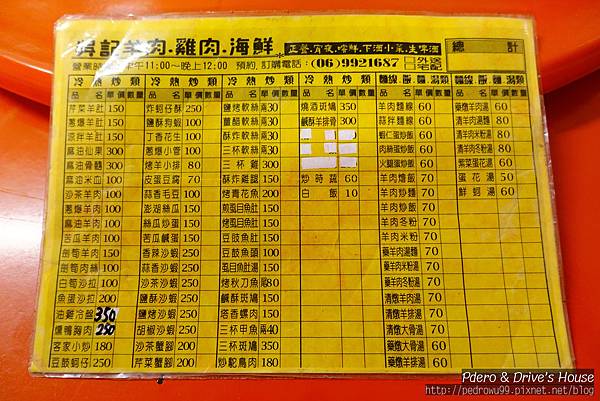 昇記羊肉.雞肉.海鮮
正餐.宵夜.嚐鮮.下酒小菜.生啤酒
營業時間:下午11:00~晚上12:00 預約.訂購電話:(06)9921687
□外送
□宅配
總計
冷熱炒類 冷熱炒類 冷熱炒類 冷熱炒類 麵線飯麵湯類 麵線飯麵湯類
品名 單價 數量 品名 單價 數量 品名 單價 數量 品名 單價 數量 品名 單價 數量 品名 單價 數量
芹菜羊肚 150
蔥爆羊肚 150
涼拌羊肚 150
麻油仙果 300
麻油骨髓 300
麻油米血 100
沙茶羊肉 100
蔥爆羊肉 100
麻油羊肉 100
苦瓜羊肉 100
薑筍羊肉 150
薑筍肉絲 100
白筍沙拉 150
魚蛋沙拉 200
油雞冷盤 350
燻鴨胸肉 250
客家小炒 180
豆豉蚵仔 250
炸蚵仔酥 250
鹽酥狗蝦 100
丁香花生 100
蔥爆小管 100
烤羊小排 80
皮蛋豆腐 70
蒜香毛豆 100
澎湖絲瓜 150
苦瓜鹹蛋 150
香辣沙蝦 250
蒜香沙蝦 250
鹽酥沙蝦 250
鹽烤沙蝦 250
胡椒沙蝦 250
沙茶蟹腳 200
芹菜蟹腳 200
鹽烤軟絲 兩30
薑醋軟絲 兩30
酥炸軟絲 兩30
三杯軟絲 兩30
三杯雞 300
酥炸雞腿 150
烤青花魚 200
煎虱目魚肚 150
豆豉魚肚 150
豆豉魚頭 100
虱目魚肚湯 150
烤秋刀魚 尾80
鹹酥斑鳩 150
塔香螺肉 150
三杯甲魚 兩40
三杯斑鳩 350
炒鴕鳥肉 180
燒酒斑鳩 350
鹹酥羊排骨 300
炒時蔬 60
白飯 10
羊肉麵線 60
麻油麵線 60
蝦仁蛋炒飯 60
肉絲蛋炒飯 60
火腿蛋炒飯 60
羊肉燴飯 70
羊肉炒飯 70
羊肉炒麵 70
羊肉冬粉 70
羊肉米粉 70
藥羊肉湯 70
藥羊肉米粉湯 80
藥羊肉冬粉湯 80
清燉羊肉湯 70
清燉羊排湯 70
清燉大骨湯 60
藥燉大骨湯 60
藥燉羊排湯 70
藥燉羊肉湯 60
清羊肉湯 60
清羊肉米粉湯 80
清羊肉冬粉湯 80
紫菜蛋花湯 60
蛋花湯 50
鮮蚵湯 60
Pdero & Drive's House
http://pedrowu99.pixnet.net/blog